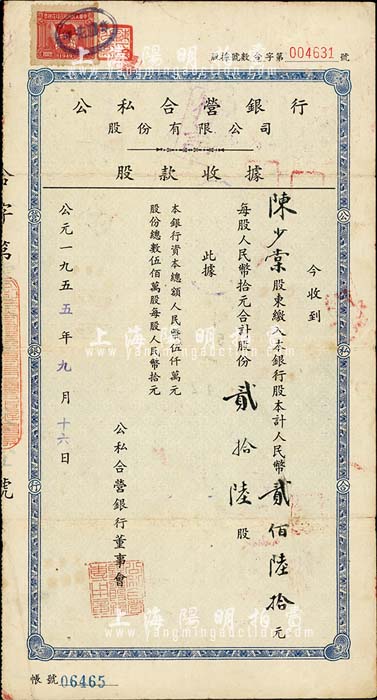 股據號數合字第 004631 號
公私合營銀行
股份有限公司
股款收據
今收到
陳少棠股東繳入本銀行股本計人民幣貳佰陸拾元
每股人民幣拾元合計股份貳拾陸股
此據
本銀行資本總額人民幣伍仟萬元
股份總數伍佰萬股每股人民幣拾元
公私合營銀行董事會
公元一九五五年九月十六日
帳號 06465
合字第
號
上海陽明拍賣
www.yangmingauction.com
上海陽明拍賣
www.yangmingauction.com